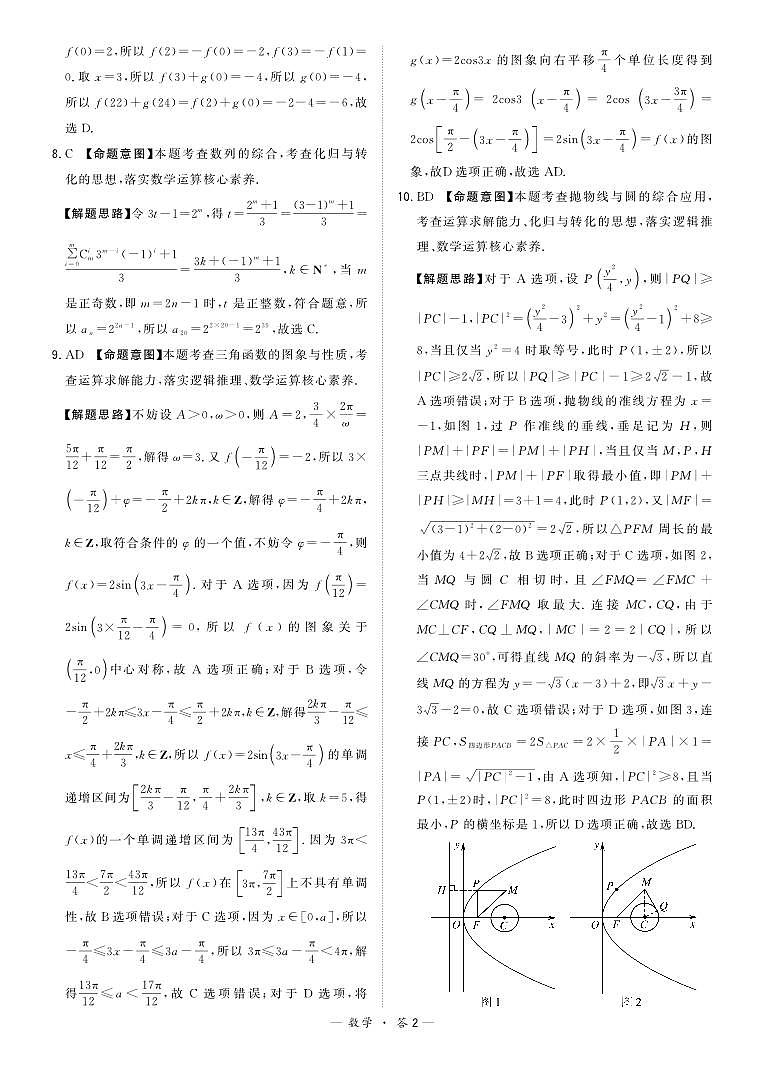 f(0)=2,所以 f(2)=-f(0)=-2,f(3)=-f(1)=
0.取 x=3,所以 f(3)+g(0)=-4,所以 g(0)=-4,
所以 f(22)+g(24)=f(2)+g(0)=-2-4=-6,故
选 D.
8. C 【命题意图】本题考查数列的综合,考查化归与转
化的思想,落实数学运算核心素养.
【解题思路】令 3t-1=2^m,得 t=\frac{2^m+1}{3}=\frac{(3-1)^m+1}{3}=
\frac{\sum_{i=0}^{m}C_m^i 3^{m-i}(-1)^i+1}{3}=\frac{3k+(-1)^m+1}{3},k∈N^*,当 m
是正奇数,即 m=2n-1 时,t 是正整数,符合题意,所
以 a_n=2^{2n-1},所以 a_{20}=2^{2×20-1}=2^{39},故选 C.
9. AD 【命题意图】本题考查三角函数的图象与性质,考
查运算求解能力,落实逻辑推理、数学运算核心素养.
【解题思路】不妨设 A>0,ω>0,则 A=2,\frac{3}{4}×\frac{2π}{ω}=
\frac{5π}{12}+\frac{π}{12}=\frac{π}{2},解得 ω=3.又 f(-\frac{π}{12})=-2,所以 3×
(-\frac{π}{12})+φ=-\frac{π}{2}+2kπ,k∈Z,解得 φ=-\frac{π}{4}+2kπ,
k∈Z,取符合条件的 φ 的一个值,不妨令 φ=-\frac{π}{4},则
f(x)=2sin(3x-\frac{π}{4}).对于 A 选项,因为 f(\frac{π}{12})=
2sin(3×\frac{π}{12}-\frac{π}{4})=0,所以 f(x)的图象关于
(\frac{π}{12},0)中心对称,故 A 选项正确;对于 B 选项,令
-\frac{π}{2}+2kπ≤3x-\frac{π}{4}≤\frac{π}{2}+2kπ,k∈Z,解得\frac{2kπ}{3}-\frac{π}{12}≤
x≤\frac{π}{4}+\frac{2kπ}{3},k∈Z,所以 f(x)=2sin(3x-\frac{π}{4})的单调
递增区间为[\frac{2kπ}{3}-\frac{π}{12},\frac{π}{4}+\frac{2kπ}{3}],k∈Z,取 k=5,得
f(x)的一个单调递增区间为[\frac{13π}{4},\frac{43π}{12}].因为 3π<
\frac{13π}{4}<\frac{7π}{2}<\frac{43π}{12},所以 f(x)在[3π,\frac{7π}{2}]上不具有单调
性,故 B 选项错误;对于 C 选项,因为 x∈[0,a],所以
-\frac{π}{4}≤3x-\frac{π}{4}≤3a-\frac{π}{4},所以 3π≤3a-\frac{π}{4}<4π,解
得\frac{13π}{12}≤a<\frac{17π}{12},故 C 选项错误;对于 D 选项,将
g(x)=2cos3x 的图象向右平移\frac{π}{4}个单位长度得到
g(x-\frac{π}{4})=2cos3(x-\frac{π}{4})=2cos(3x-\frac{3π}{4})=
2cos[\frac{π}{2}-(3x-\frac{π}{4})]=2sin(3x-\frac{π}{4})=f(x)的图
象,故D 选项正确,故选 AD.
10. BD 【命题意图】本题考查抛物线与圆的综合应用,
考查运算求解能力、化归与转化的思想,落实逻辑推
理、数学运算核心素养.
【解题思路】对于 A 选项,设 P(\frac{y^2}{4},y),则|PQ|≥
|PC|-1,|PC|^2=(\frac{y^2}{4}-3)^2+y^2=(\frac{y^2}{4}-1)^2+8≥
8,当且仅当 y^2=4 时取等号,此时 P(1,±2),所以
|PC|≥2√2,所以|PQ|≥|PC|-1≥2√2-1,故
A 选项错误;对于 B 选项,抛物线的准线方程为 x=
-1,如图 1,过 P 作准线的垂线,垂足记为 H,则
|PM|+|PF|=|PM|+|PH|,当且仅当 M,P,H
三点共线时,|PM|+|PF|取得最小值,即|PM|+
|PH|≥|MH|=3+1=4,此时 P(1,2),又|MF|=
√((3-1)^2+(2-0)^2)=2√2,所以△PFM 周长的最
小值为 4+2√2,故 B 选项正确;对于 C 选项,如图 2,
当 MQ 与圆 C 相切时,且 ∠FMQ=∠FMC+
∠CMQ 时,∠FMQ 取最大.连接 MC,CQ,由于
MC⊥CF,CQ⊥MQ,|MC|=2=2|CQ|,所以
∠CMQ=30°,可得直线 MQ 的斜率为-√3,所以直
线 MQ 的方程为 y=-√3(x-3)+2,即√3x+y-
3√3-2=0,故 C 选项错误;对于 D 选项,如图 3,连
接 PC,S_{四边形PACB}=2S_{△PAC}=2×\frac{1}{2}×|PA|×1=
|PA|=√(|PC|^2-1),由 A 选项知,|PC|^2≥8,且当
P(1,±2)时,|PC|^2=8,此时四边形 PACB 的面积
最小,P 的横坐标是 1,所以 D 选项正确,故选 BD.
y
H P M
O F C x
图 1
y
P M
Q
O F C x
图 2
— 数学 · 答 2 —